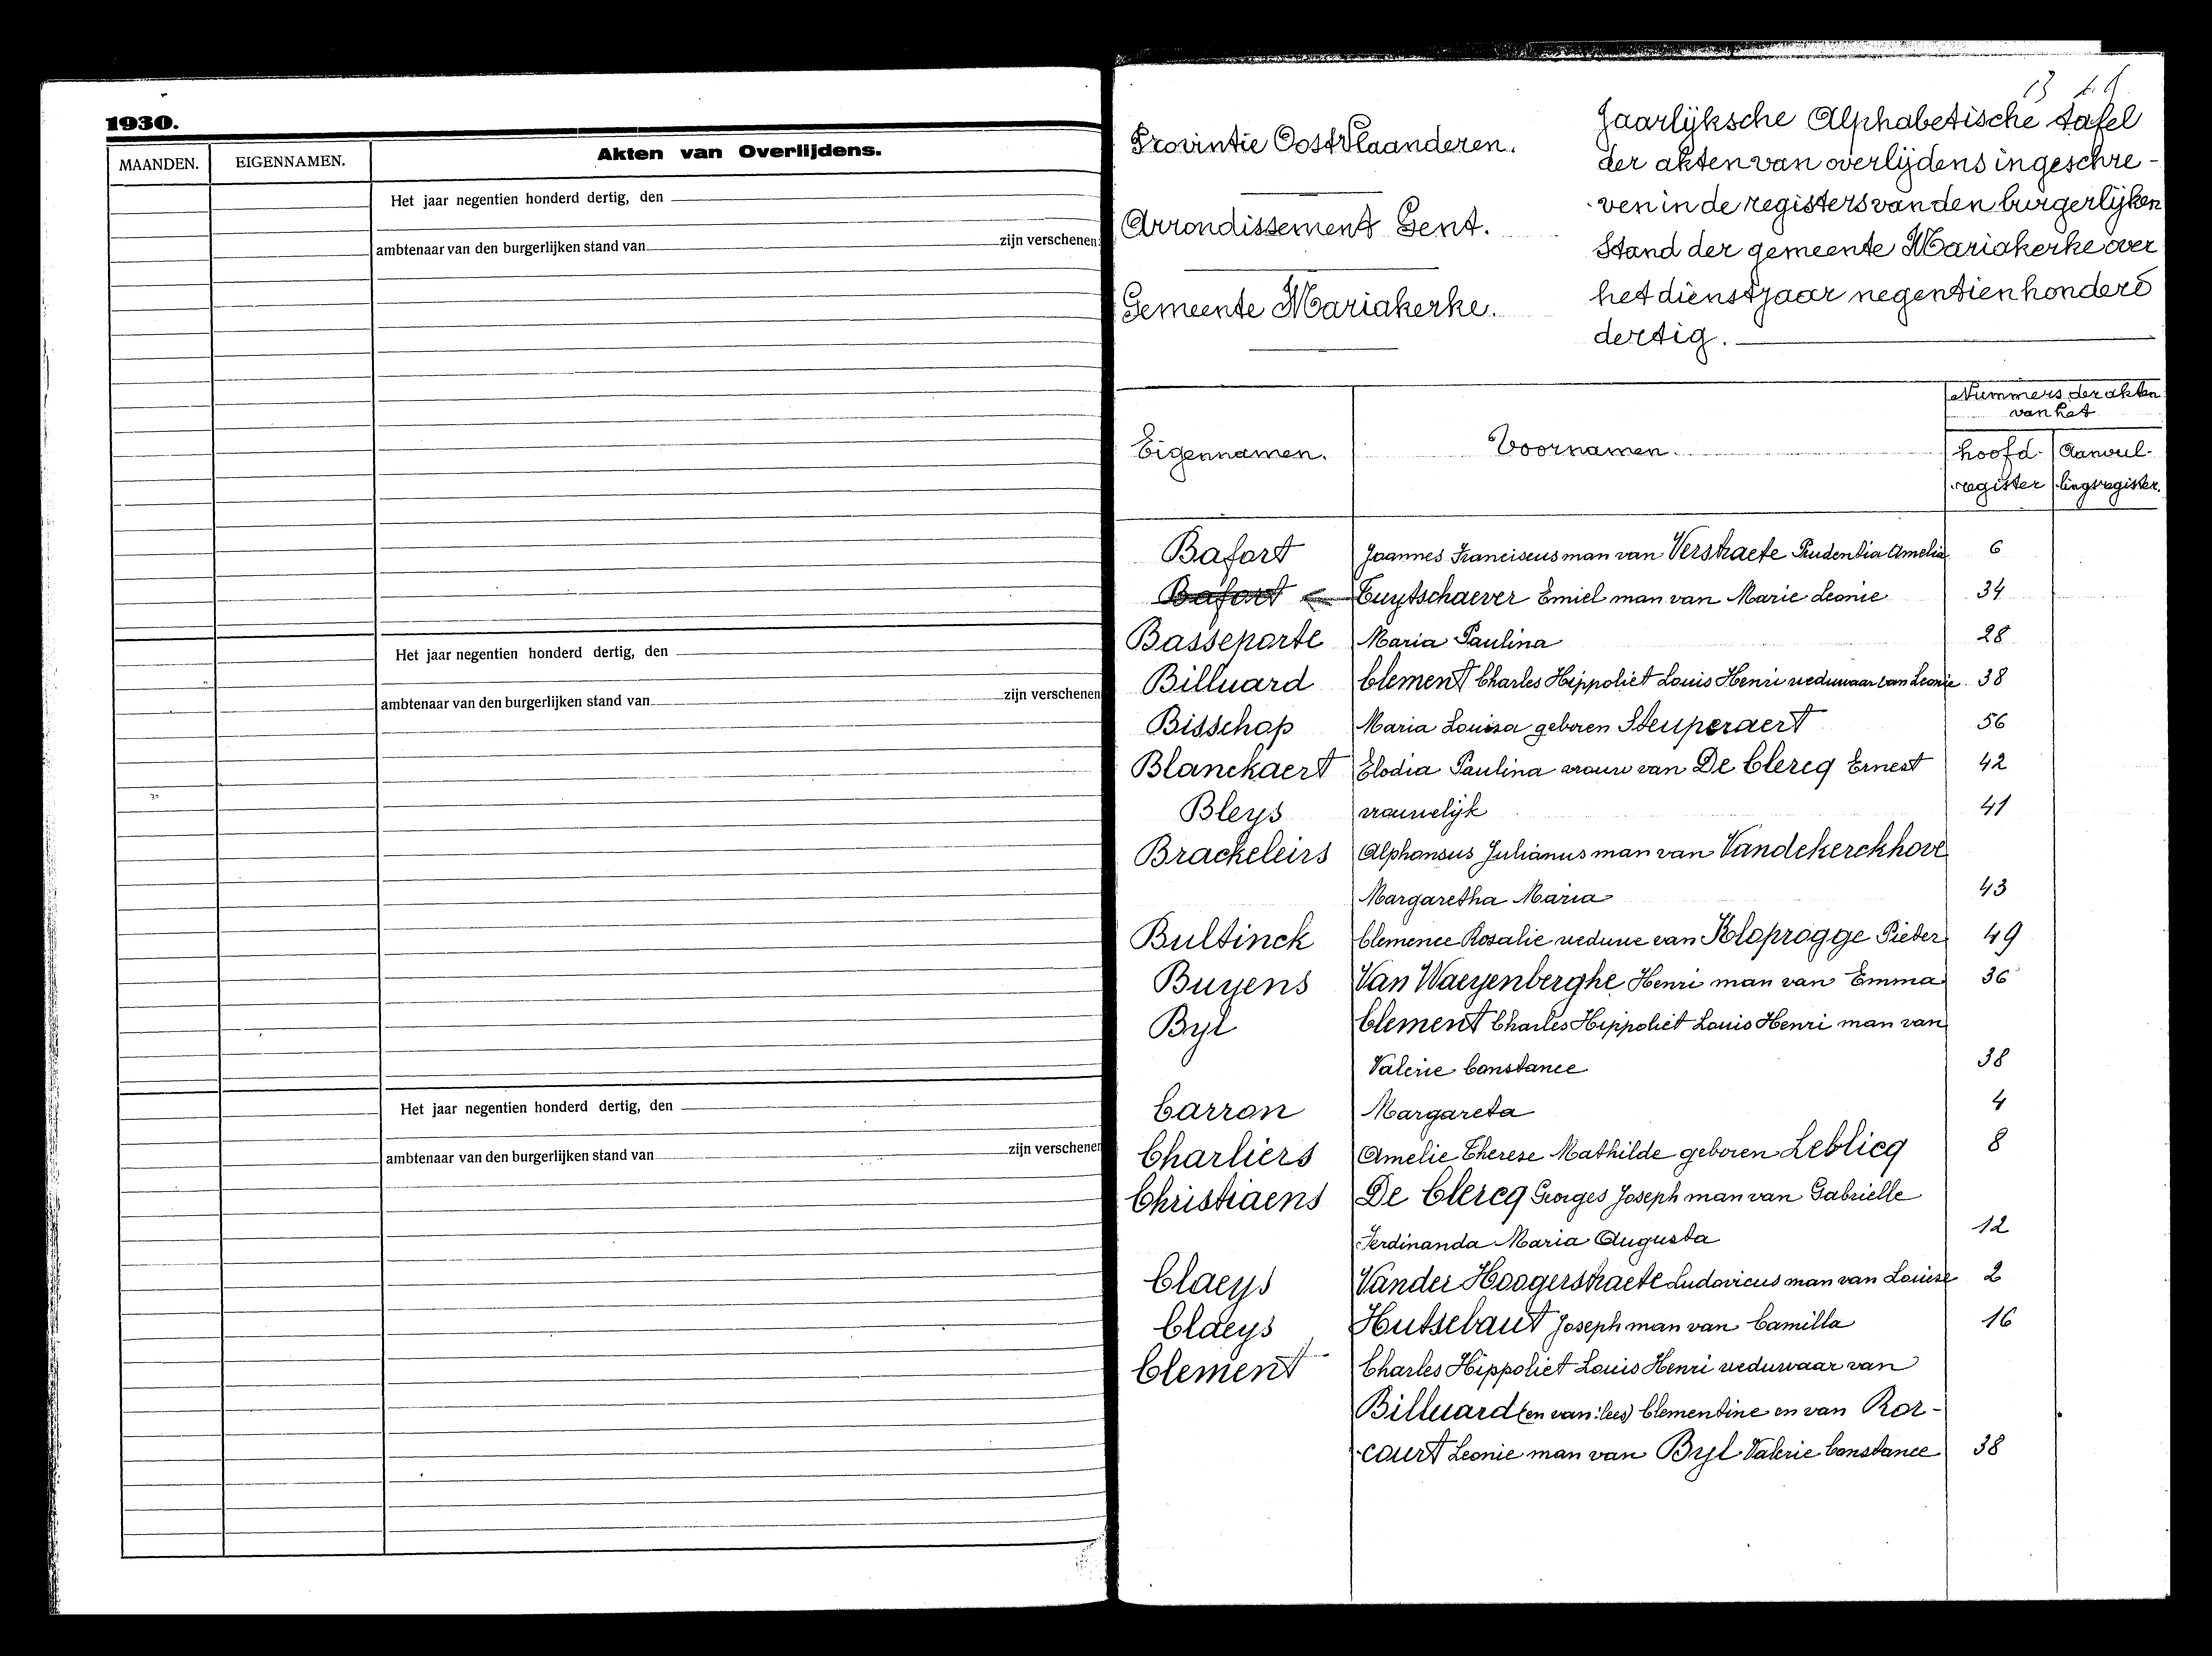 1930.
MAANDEN. EIGENNAMEN. Akten van Overlijdens.
Het jaar negentien honderd dertig, den
ambtenaar van den burgerlijken stand van zijn verschenen
Het jaar negentien honderd dertig, den
ambtenaar van den burgerlijken stand van zijn verschenen
Het jaar negentien honderd dertig, den
ambtenaar van den burgerlijken stand van zijn verschenen
Provintie OostVlaanderen.
Arrondissement Gent.
Gemeente Mariakerke.
13
Jaarlijksche Alphabetische tafel
der akten van overlijdens ingeschre-
ven in de registers van den burgerlijken
stand der gemeente Mariakerke over
het dienstjaar negentienhonderd
dertig.
Eigennamen. Voornamen. Nummers der akten
van het
hoofd- Aanvul-
register lingsregister.
Bafort Joannes Franciscus man van Verstraete Prudentia Amelia 6
Bafort Tuytschaever Emiel man van Marie Leonie 34
Basseporte Maria Paulina 28
Billuard Clement Charles Hippoliet Louis Henri weduwaar van Leonie 38
Bisschop Maria Louisa geboren Steuperaert 56
Blanckaert Elodia Paulina vrouw van De Clercq Ernest 42
Bleys vrouwelijk 41
Brackeleirs Alphonsus Julianus man van Vandekerckhove
Margaretha Maria 43
Bultinck Clemence Rosalie weduwe van Kloprogge Pieter 49
Buyens Van Waeyenberghe Henri man van Emma 36
Byl Clement Charles Hippoliet Louis Henri man van
Valerie Constance 38
Carron Margareta 4
Charliers Amelie Therese Mathilde geboren Leblicq 8
Christiaens De Clercq Georges Joseph man van Gabrielle
Ferdinanda Maria Augusta 12
Claeys Vander Hoogerstraete Ludovicus man van Louise 2
Claeys Hutsebaut Joseph man van Camilla 16
Clement Charles Hippoliet Louis Henri weduwaar van
Billuard (en van: lees) Clementine en van Ror-
court Leonie man van Byl Valerie Constance 38